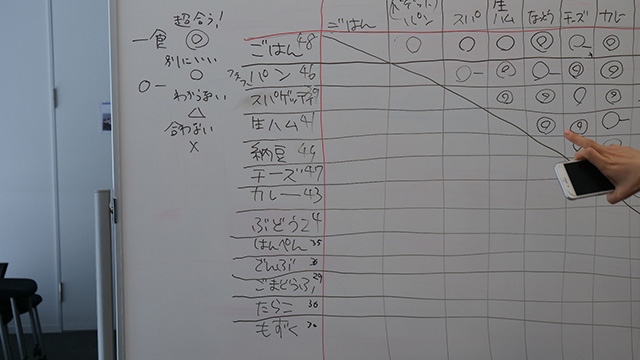 超合う!
一食 ◎
別にいい
○
○ー
わからない
△
合わない
×
ごはん パン スパ 生ハム なっとう チーズ カレー
ごはん 48
フランスパン 46
スパゲッティ
生ハム 41
納豆
チーズ 47
カレー 43
ぶどう
はんぺん 35
こんぶ
ごまどうふ 29
たらこ 36
もずく